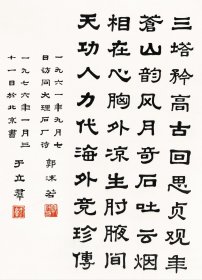 三塔矜高古回思贞观年
蒼山韵风月奇石吐云烟
相在心胸外凉生肘腋间
天功人力代海外竞珍傳
一九六一年九月七
日访问大理石厂诗 郭沫若
一九七六年一月三
十一日於北京書 于立羣